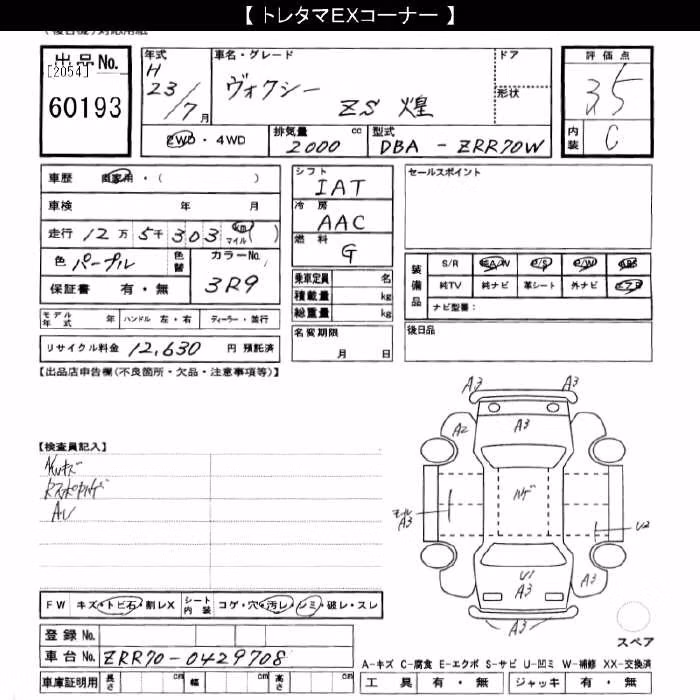 【 トレタマEXコーナー 】
出品No.
[2054]
60193
年式
H
23/7月
車名・グレード
ヴォクシー ZS 煌
ドア
形状
評価点
3.5
内装 C
2WD・4WD
排気量 cc
2000
型式
DBA - ZRR70W
車歴 自家用・( )
車検 年 月
走行 12万 5千 303 km マイル ( )
色 パープル 色替 カラーNo. 3R9
保証書 有・無
モデル年式 年 ハンドル 左・右 ディーラー・並行
リサイクル料金 12,630 円 預託済
シフト
IAT
冷房
AAC
燃料
G
乗車定員 名
積載量 kg
総重量 kg
名変期限
月 日
セールスポイント
装備品
S/R A/W P/S P/W ABS
純TV 純ナビ 革シート 外ナビ エアB
ナビ型番:
後日品
【出品店申告欄(不良箇所・欠品・注意事項等)】
【検査員記入】
AWキズ
AU
A3 A3
A2 A3
ハゲ
モール A3
U2
U1
A3 A3
A3 A3
スペア
FW キズ・トビ石・割レX シート内装 コゲ・穴・汚レ・シミ・破レ・スレ
登録No.
車台No. ZRR70-0429708
車庫証明用 長さ cm 幅 cm 高さ cm
A-キズ C-腐食 E-エクボ S-サビ U-凹ミ W-補修 XX-交換済
工具 有・無 ジャッキ 有・無